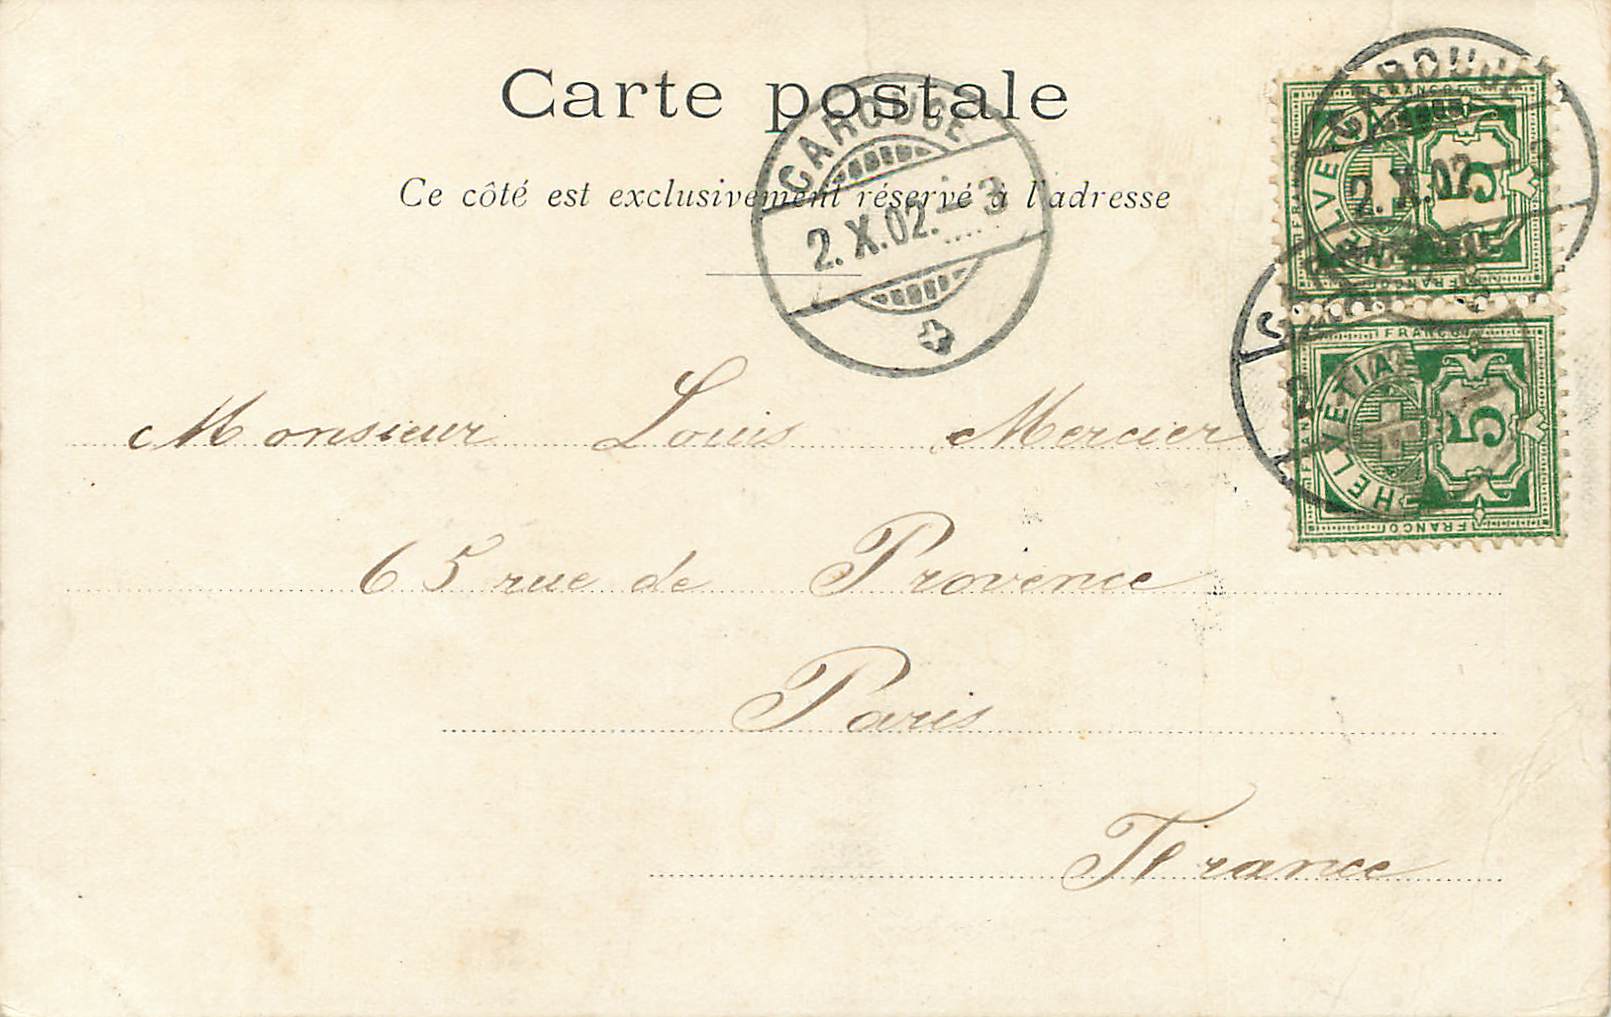 Carte postale
Ce côté est exclusivement réservé à l'adresse
CAROUGE
2.X.02. – 3
CAROUGE
2.X.02 – 3
FRANCO
HELVETIA
5
FRANCO
FRANCO
HELVETIA
5
FRANCO
Monsieur Louis Mercier
65 rue de Provence
Paris
France